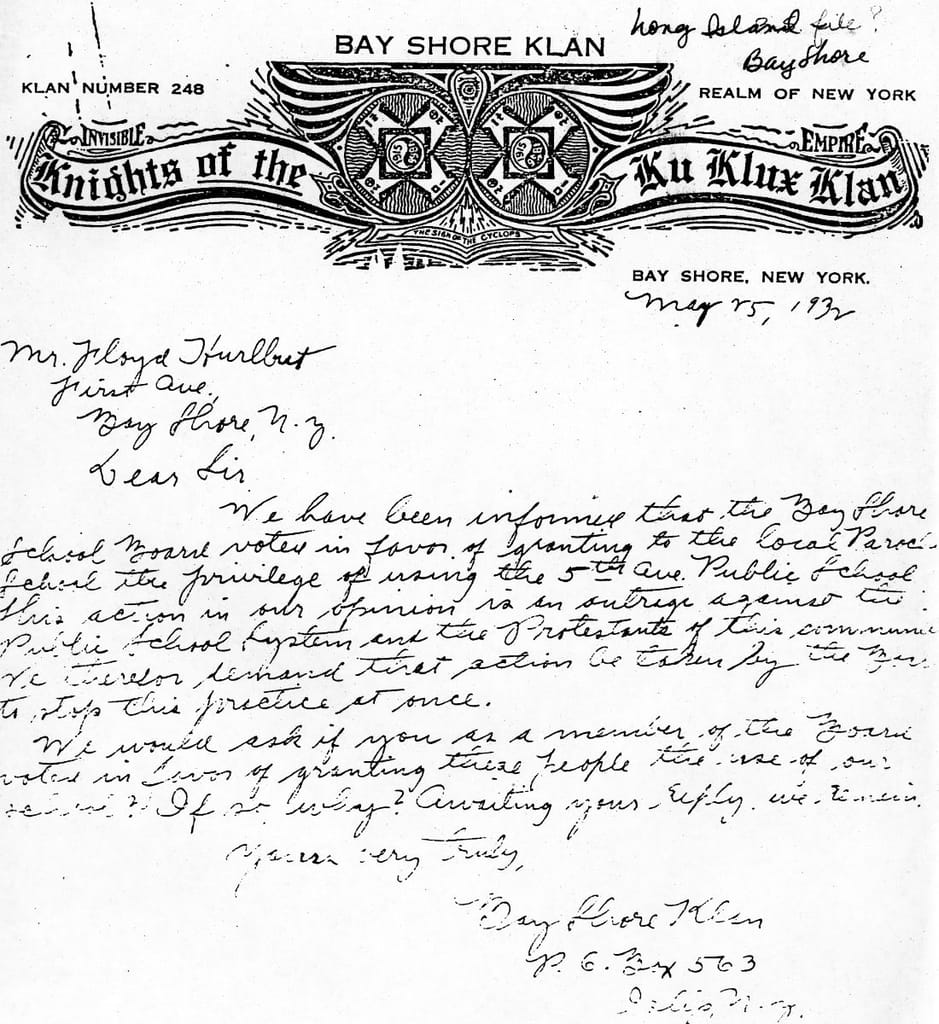 Long Island file?
Bay Shore
BAY SHORE KLAN
KLAN NUMBER 248
REALM OF NEW YORK
INVISIBLE
EMPIRE
Knights of the
Ku Klux Klan
THE SIGN OF THE CYCLOPS
BAY SHORE, NEW YORK.
May 25, 1932
Mr. Floyd Hurlbut
First Ave.,
Bay Shore, N.Y.
Dear Sir
We have been informed that the Bay Shore
School Board voted in favor of granting to the local Paroch
School the privilege of using the 5th Ave. Public School
this action in our opinion is an outrage against the
Public School System and the Protestants of this commun
We therefor demand that action be taken by the
to stop this practice at once.
We would ask if you as a member of the Board
voted in favor of granting these people the use of our
school? If so why? Awaiting your reply we remain
Yours very truly,
Bay Shore Klan
P.O. Box 563
Islip, N.Y.